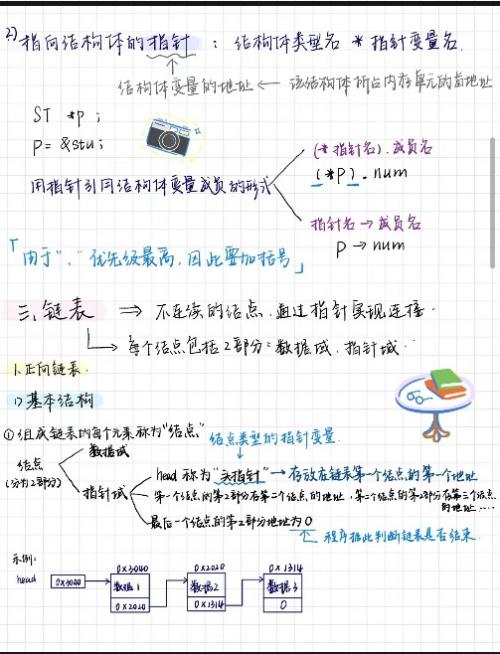 2) 指向结构体的指针 : 结构体类型名 * 指针变量名.
结构体变量的地址 ← 该结构体所占内存单元的首地址
ST *p ;
p = &stu ;
用指针引用结构体变量成员的形式
(*指针名).成员名
(*p).num
指针名→成员名
p→num
「由于"."优先级最高,因此要加括号」
三.链表 ⇒ 不连续的结点.通过指针实现连接.
每个结点包括2部分:数据域.指针域..
1.正向链表.
1)基本结构
①组成链表的每个元素称为"结点"
结点类型的指针变量.
结点
(分为2部分)
数据域
指针域
head 称为"头指针" → 存放在链表第一个结点的第一个地址
第一个结点的第2部分存第二个结点的地址,第二个结点的第2部分存第三个结点
的地址....
最后一个结点的第2部分地址为0
程序据此判断链表是否结束.
示例:
0x3040 0x2020 0x1314
head 0x3040 数据1 数据2 数据3
0x2020 0x1314 0